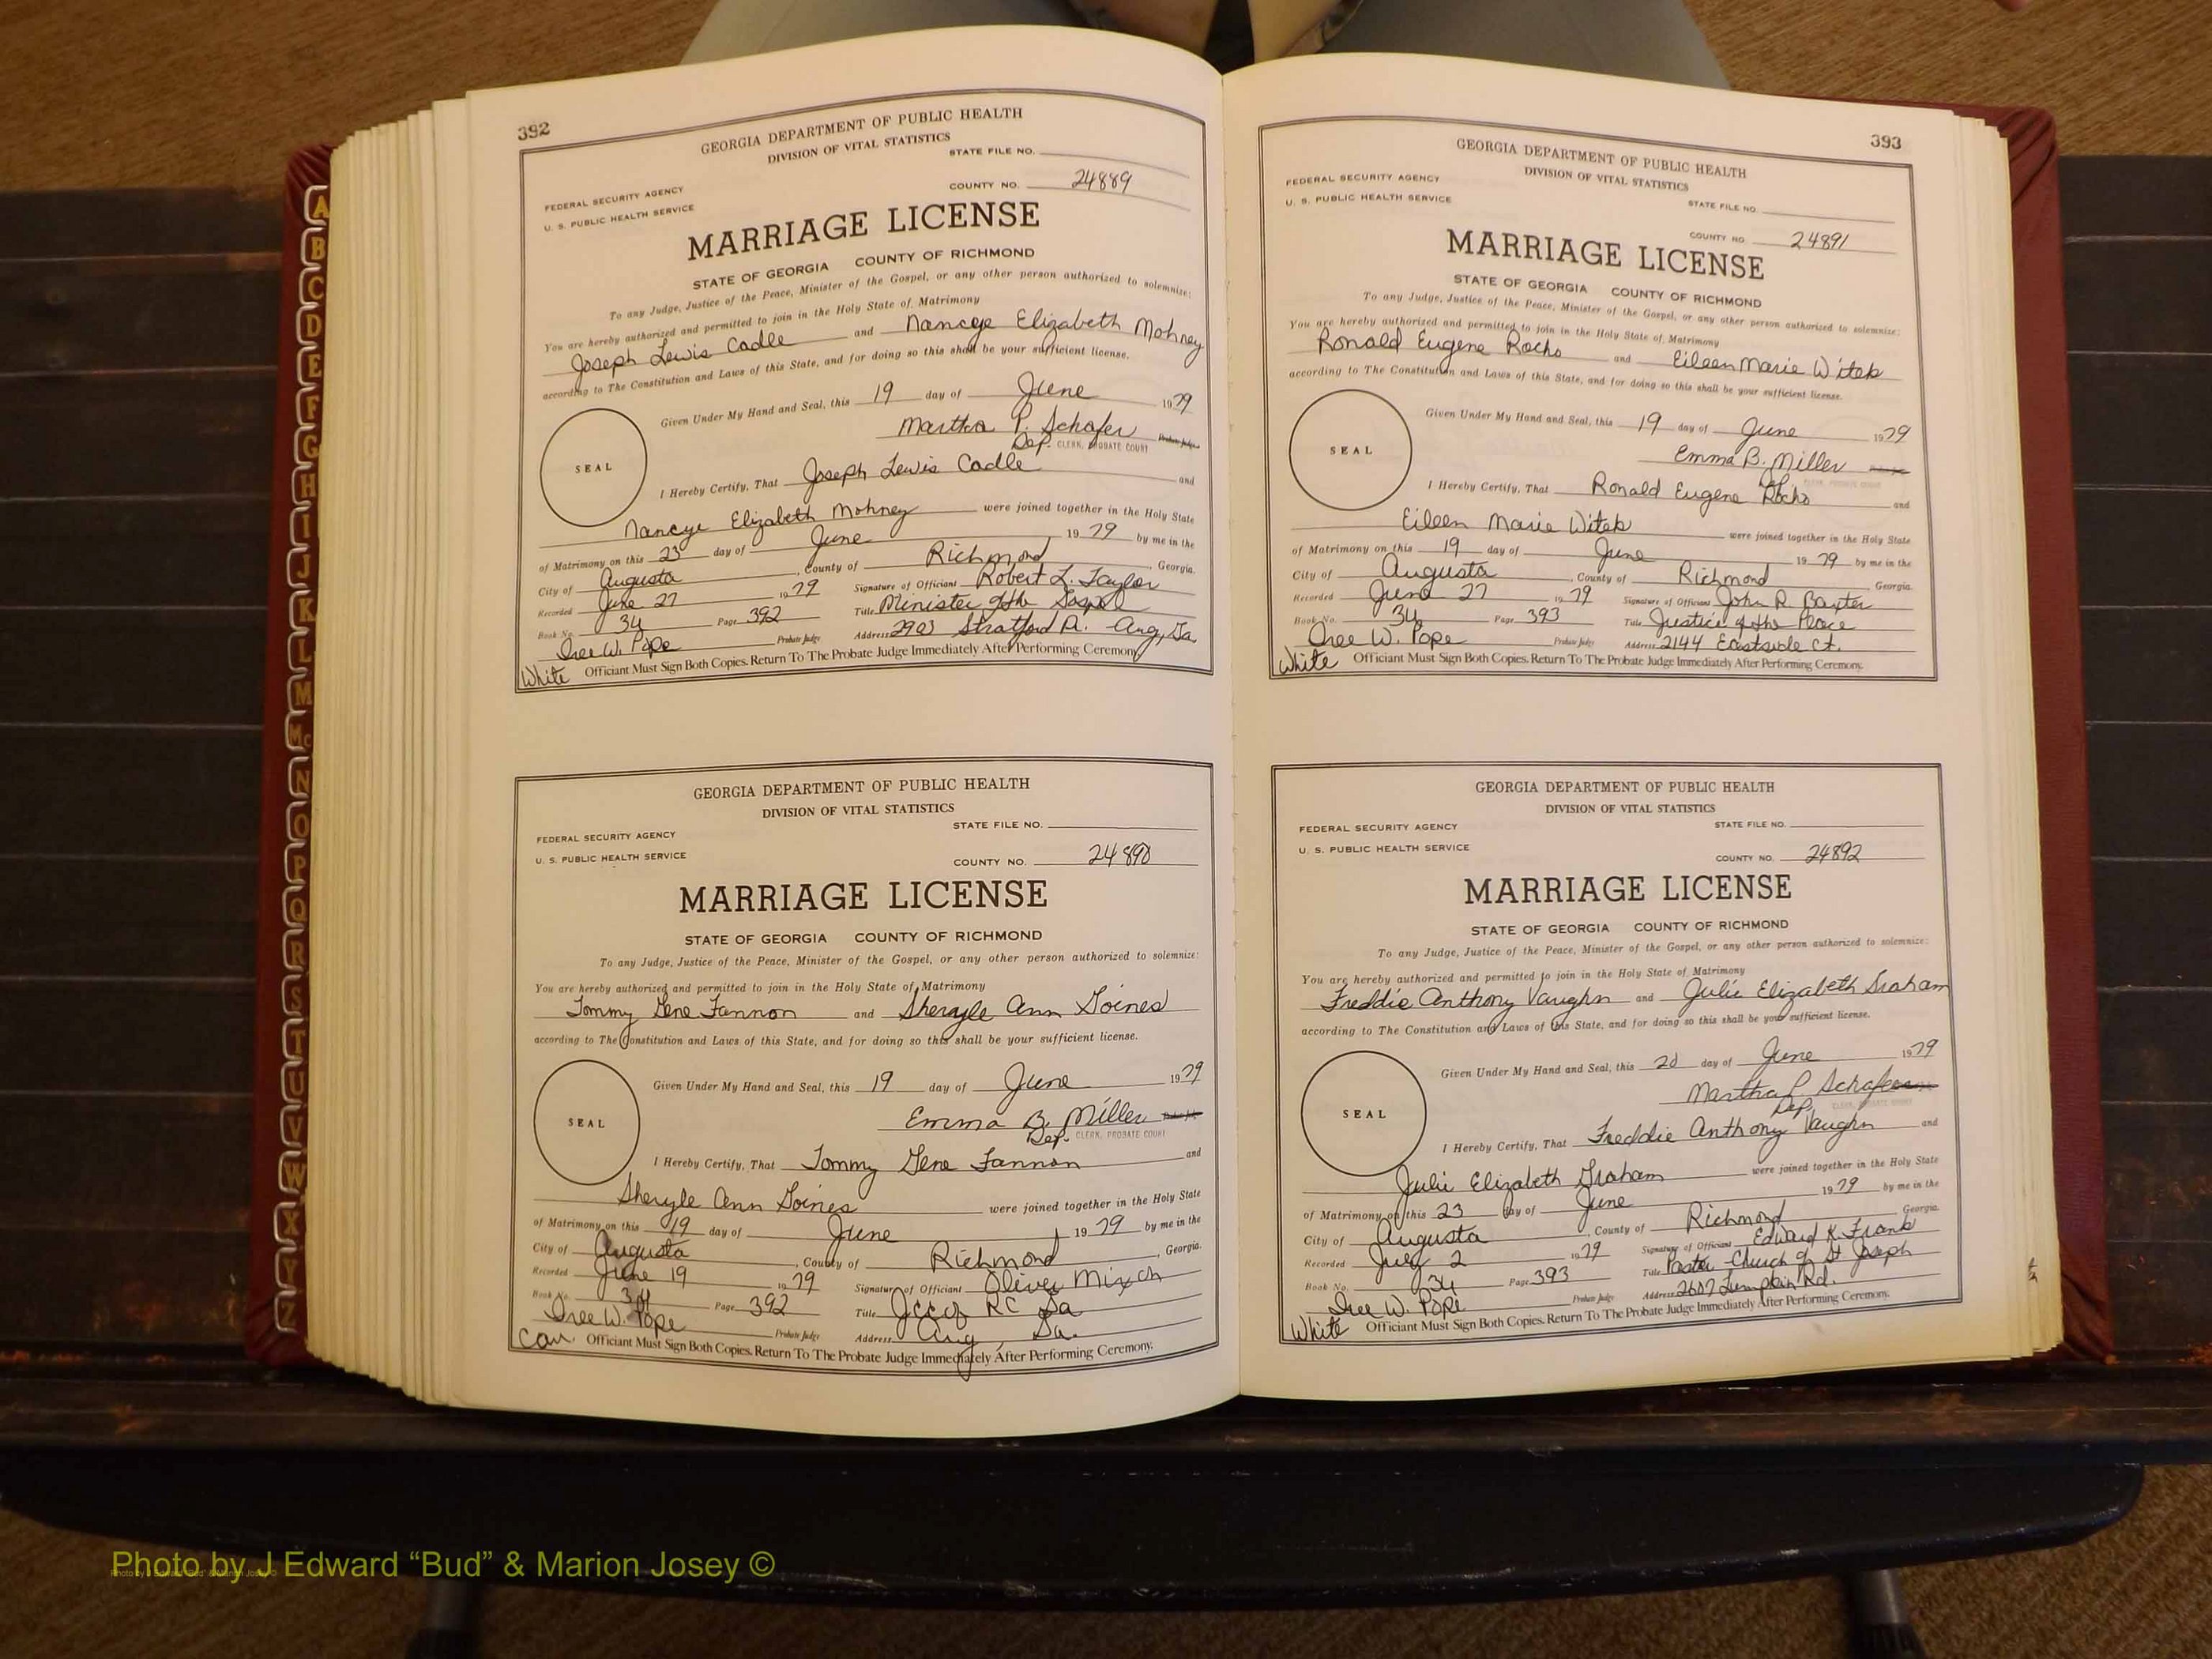 392
GEORGIA DEPARTMENT OF PUBLIC HEALTH
DIVISION OF VITAL STATISTICS
STATE FILE NO.
FEDERAL SECURITY AGENCY
COUNTY NO. 24889
U. S. PUBLIC HEALTH SERVICE
MARRIAGE LICENSE
STATE OF GEORGIA COUNTY OF RICHMOND
To any Judge, Justice of the Peace, Minister of the Gospel, or any other person authorized to solemnize:
You are hereby authorized and permitted to join in the Holy State of Matrimony
Joseph Lewis Cadle and Nancye Elizabeth Mohney
according to The Constitution and Laws of this State, and for doing so this shall be your sufficient license.
Given Under My Hand and Seal, this 19 day of June 1979
Martha P. Schafer Probate Judge
Dep. CLERK, PROBATE COURT
SEAL
I Hereby Certify, That Joseph Lewis Cadle and
Nancye Elizabeth Mohney were joined together in the Holy State
of Matrimony on this 23 day of June 1979 by me in the
City of Augusta, County of Richmond, Georgia.
Recorded June 27 1979 Signature of Officiant Robert L. Taylor
Book No. 34 Page 392 Title Minister of the Gospel
Iree W. Pope Probate Judge Address 2903 Stratford Dr. Aug, Ga.
White Officiant Must Sign Both Copies. Return To The Probate Judge Immediately After Performing Ceremony.
GEORGIA DEPARTMENT OF PUBLIC HEALTH
DIVISION OF VITAL STATISTICS
STATE FILE NO.
FEDERAL SECURITY AGENCY
U. S. PUBLIC HEALTH SERVICE
COUNTY NO. 24890
MARRIAGE LICENSE
STATE OF GEORGIA COUNTY OF RICHMOND
To any Judge, Justice of the Peace, Minister of the Gospel, or any other person authorized to solemnize:
You are hereby authorized and permitted to join in the Holy State of Matrimony
Tommy Gene Fannon and Sheryle Ann Goines
according to The Constitution and Laws of this State, and for doing so this shall be your sufficient license.
Given Under My Hand and Seal, this 19 day of June 1979
Emma B. Miller Probate Judge
Dep. CLERK, PROBATE COURT
SEAL
I Hereby Certify, That Tommy Gene Fannon and
Sheryle Ann Goines were joined together in the Holy State
of Matrimony on this 19 day of June 1979 by me in the
City of Augusta, County of Richmond, Georgia.
Recorded June 19 1979 Signature of Officiant Oliver Mixon
Book No. 34 Page 392 Title RC Ga
Iree W. Pope Probate Judge Address Aug Ga.
Cau Officiant Must Sign Both Copies. Return To The Probate Judge Immediately After Performing Ceremony.
393
GEORGIA DEPARTMENT OF PUBLIC HEALTH
DIVISION OF VITAL STATISTICS
FEDERAL SECURITY AGENCY
U. S. PUBLIC HEALTH SERVICE
STATE FILE NO.
COUNTY NO. 24891
MARRIAGE LICENSE
STATE OF GEORGIA COUNTY OF RICHMOND
To any Judge, Justice of the Peace, Minister of the Gospel, or any other person authorized to solemnize:
You are hereby authorized and permitted to join in the Holy State of Matrimony
Ronald Eugene Rocho and Eileen Marie Witek
according to The Constitution and Laws of this State, and for doing so this shall be your sufficient license.
Given Under My Hand and Seal, this 19 day of June 1979
Emma B. Miller
CLERK, PROBATE COURT
SEAL
I Hereby Certify, That Ronald Eugene Rocho and
Eileen Marie Witek were joined together in the Holy State
of Matrimony on this 19 day of June 1979 by me in the
City of Augusta, County of Richmond Georgia.
Recorded June 27 1979 Signature of Officiant John R. Baxter
Book No. 34 Page 393 Title Justice of the Peace
Iree W. Pope Probate Judge Address 2144 Eastside Ct.
White Officiant Must Sign Both Copies. Return To The Probate Judge Immediately After Performing Ceremony.
GEORGIA DEPARTMENT OF PUBLIC HEALTH
DIVISION OF VITAL STATISTICS
FEDERAL SECURITY AGENCY STATE FILE NO.
U. S. PUBLIC HEALTH SERVICE
COUNTY NO. 24892
MARRIAGE LICENSE
STATE OF GEORGIA COUNTY OF RICHMOND
To any Judge, Justice of the Peace, Minister of the Gospel, or any other person authorized to solemnize:
You are hereby authorized and permitted to join in the Holy State of Matrimony
Freddie Anthony Vaughn and Julie Elizabeth Graham
according to The Constitution and Laws of this State, and for doing so this shall be your sufficient license.
Given Under My Hand and Seal, this 20 day of June 1979
Martha P. Schafer
Dep. CLERK, PROBATE COURT
SEAL
I Hereby Certify, That Freddie Anthony Vaughn and
Julie Elizabeth Graham were joined together in the Holy State
of Matrimony on this 23 day of June 1979 by me in the
City of Augusta, County of Richmond Georgia.
Recorded July 2 1979 Signature of Officiant Edward K. Frank
Book No. 34 Page 393 Title Pastor - Church of St Joseph
Iree W. Pope Probate Judge Address 2607 Lumpkin Rd.
White Officiant Must Sign Both Copies. Return To The Probate Judge Immediately After Performing Ceremony.
A
B
C
D
E
F
G
H
I
J
K
L
M
Mc
N
O
P
Q
R
S
T
U
V
W
X
Y
Z
Photo by J Edward “Bud” & Marion Josey ©
Photo by J Edward “Bud” & Marion Josey ©